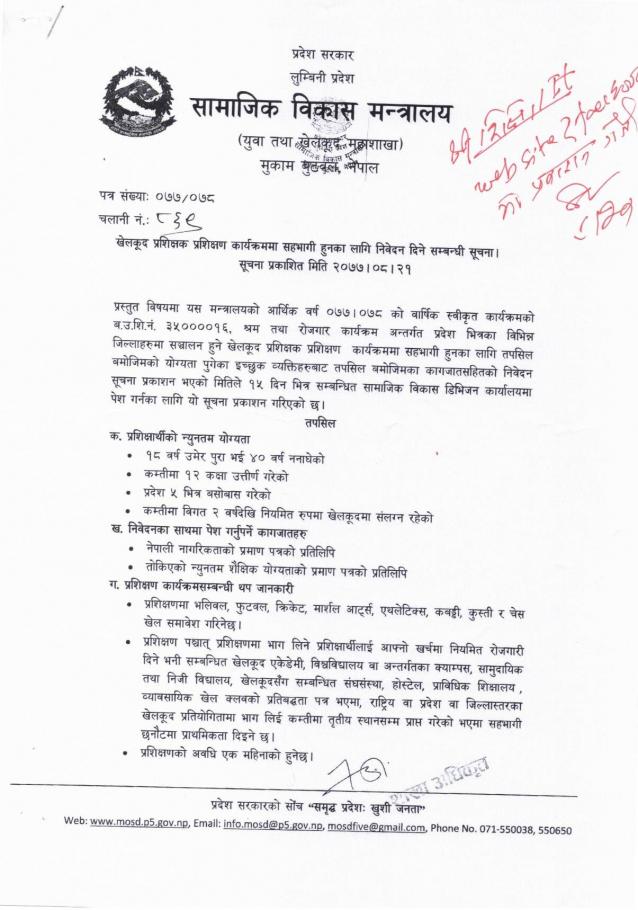 प्रदेश सरकार
लुम्बिनी प्रदेश
सामाजिक विकास मन्त्रालय
(युवा तथा खेलकूद महाशाखा)
मुकाम बुटवल, नेपाल
पत्र संख्याः ०७७/०७८
चलानी नं.: ८३९
web site
खेलकूद प्रशिक्षक प्रशिक्षण कार्यक्रममा सहभागी हुनका लागि निवेदन दिने सम्बन्धी सूचना।
सूचना प्रकाशित मिति २०७७।०८।२१
प्रस्तुत विषयमा यस मन्त्रालयको आर्थिक वर्ष ०७७।०७८ को वार्षिक स्वीकृत कार्यक्रमको
ब.उ.शि.नं. ३५००००१६, श्रम तथा रोजगार कार्यक्रम अन्तर्गत प्रदेश भित्रका विभिन्न
जिल्लाहरुमा सञ्चालन हुने खेलकूद प्रशिक्षक प्रशिक्षण कार्यक्रममा सहभागी हुनका लागि तपसिल
बमोजिमको योग्यता पुगेका इच्छुक व्यक्तिहरुबाट तपसिल बमोजिमका कागजातसहितको निवेदन
सूचना प्रकाशन भएको मितिले १५ दिन भित्र सम्बन्धित सामाजिक विकास डिभिजन कार्यालयमा
पेश गर्नका लागि यो सूचना प्रकाशन गरिएको छ।
तपसिल
क. प्रशिक्षार्थीको न्युनतम योग्यता
• १८ वर्ष उमेर पुरा भई ४० वर्ष ननाघेको
• कम्तीमा १२ कक्षा उत्तीर्ण गरेको
• प्रदेश ५ भित्र बसोबास गरेको
• कम्तीमा बिगत २ वर्षदेखि नियमित रुपमा खेलकूदमा संलग्न रहेको
ख. निवेदनका साथमा पेश गर्नुपर्ने कागजातहरु
• नेपाली नागरिकताको प्रमाण पत्रको प्रतिलिपि
• तोकिएको न्युनतम शैक्षिक योग्यताको प्रमाण पत्रको प्रतिलिपि
ग. प्रशिक्षण कार्यक्रमसम्बन्धी थप जानकारी
• प्रशिक्षणमा भलिवल, फुटवल, क्रिकेट, मार्शल आर्ट्स, एथलेटिक्स, कबड्डी, कुस्ती र चेस
खेल समावेश गरिनेछ।
• प्रशिक्षण पश्चात् प्रशिक्षणमा भाग लिने प्रशिक्षार्थीलाई आफ्नो खर्चमा नियमित रोजगारी
दिने भनी सम्बन्धित खेलकूद एकेडेमी, विश्वविद्यालय वा अन्तर्गतका क्याम्पस, सामुदायिक
तथा निजी विद्यालय, खेलकूदसँग सम्बन्धित संघसंस्था, होस्टेल, प्राविधिक शिक्षालय ,
व्यावसायिक खेल क्लवको प्रतिबद्धता पत्र भएमा, राष्ट्रिय वा प्रदेश वा जिल्लास्तरका
खेलकूद प्रतियोगितामा भाग लिई कम्तीमा तृतीय स्थानसम्म प्राप्त गरेको भएमा सहभागी
छनौटमा प्राथमिकता दिइने छ।
• प्रशिक्षणको अवधि एक महिनाको हुनेछ।
शाखा अधिकृत
प्रदेश सरकारको सोंच “समृद्ध प्रदेशः खुशी जनता”
Web: www.mosd.p5.gov.np, Email: info.mosd@p5.gov.np, mosdfive@gmail.com, Phone No. 071-550038, 550650